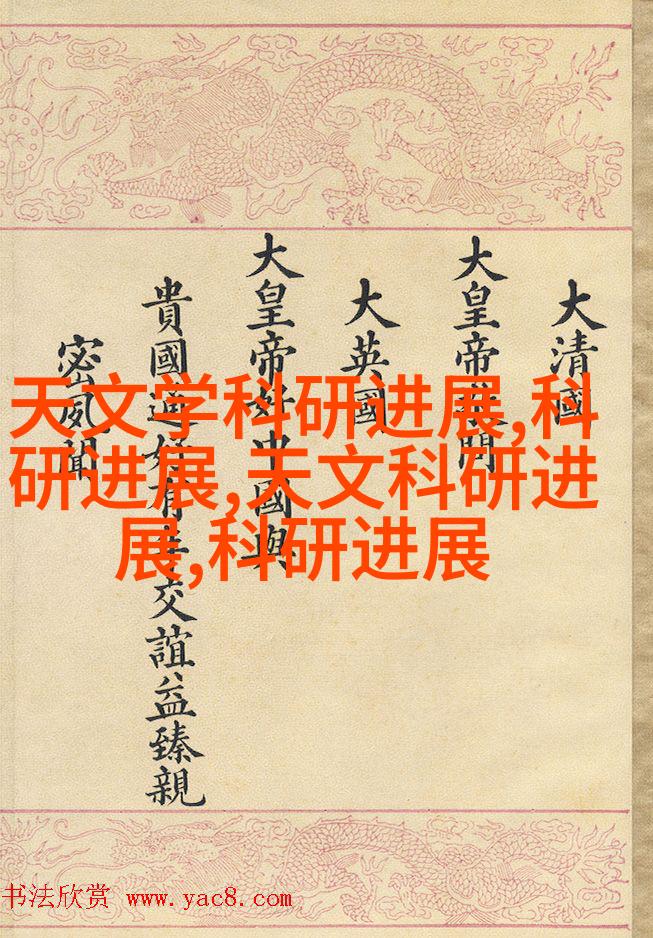 大清國
大皇帝問
大英國
大皇帝好中國與
貴國通好有年交誼益臻親
密夙聞
天文学科研进展,科
研进展,天文科研进
展,科研进展
书法欣赏 www.yac8.com